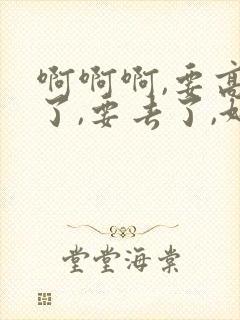 啊啊啊,要高
了,要去了,
堂堂海棠